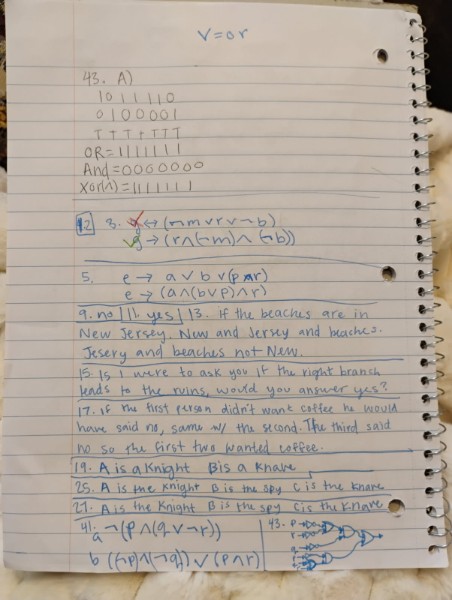 V = or
43. A)
1011110
0100001
TTTTTTT
OR=1111111
And=0000000
Xor(∧)=1111111
1.2 3. ↔ (¬m ∨ r ∨ ¬b)
g → (r ∧ (¬m) ∧ (¬b))
5. e → a ∨ b ∨ (p ∧ r)
e → (a ∧ (b ∨ p) ∧ r)
9. no | 11. yes | 13. If the beaches are in
New Jersey. New and Jersey and beaches.
Jesery and beaches not New.
15. Is I were to ask you if the right branch
leads to the ruins, would you answer yes?
17. if the first person didn't want coffee he would
have said no, same w/ the second. The third said
no so the first two wanted coffee.
19. A is a Knight B is a Knave
25. A is the Knight B is the spy C is the Knave
27. A is the Knight B is the spy C is the Knave
41. a ¬(p ∧ (q ∨ ¬r))
b ((¬p) ∧ (¬q)) ∨ (p ∧ r)
43. p
r